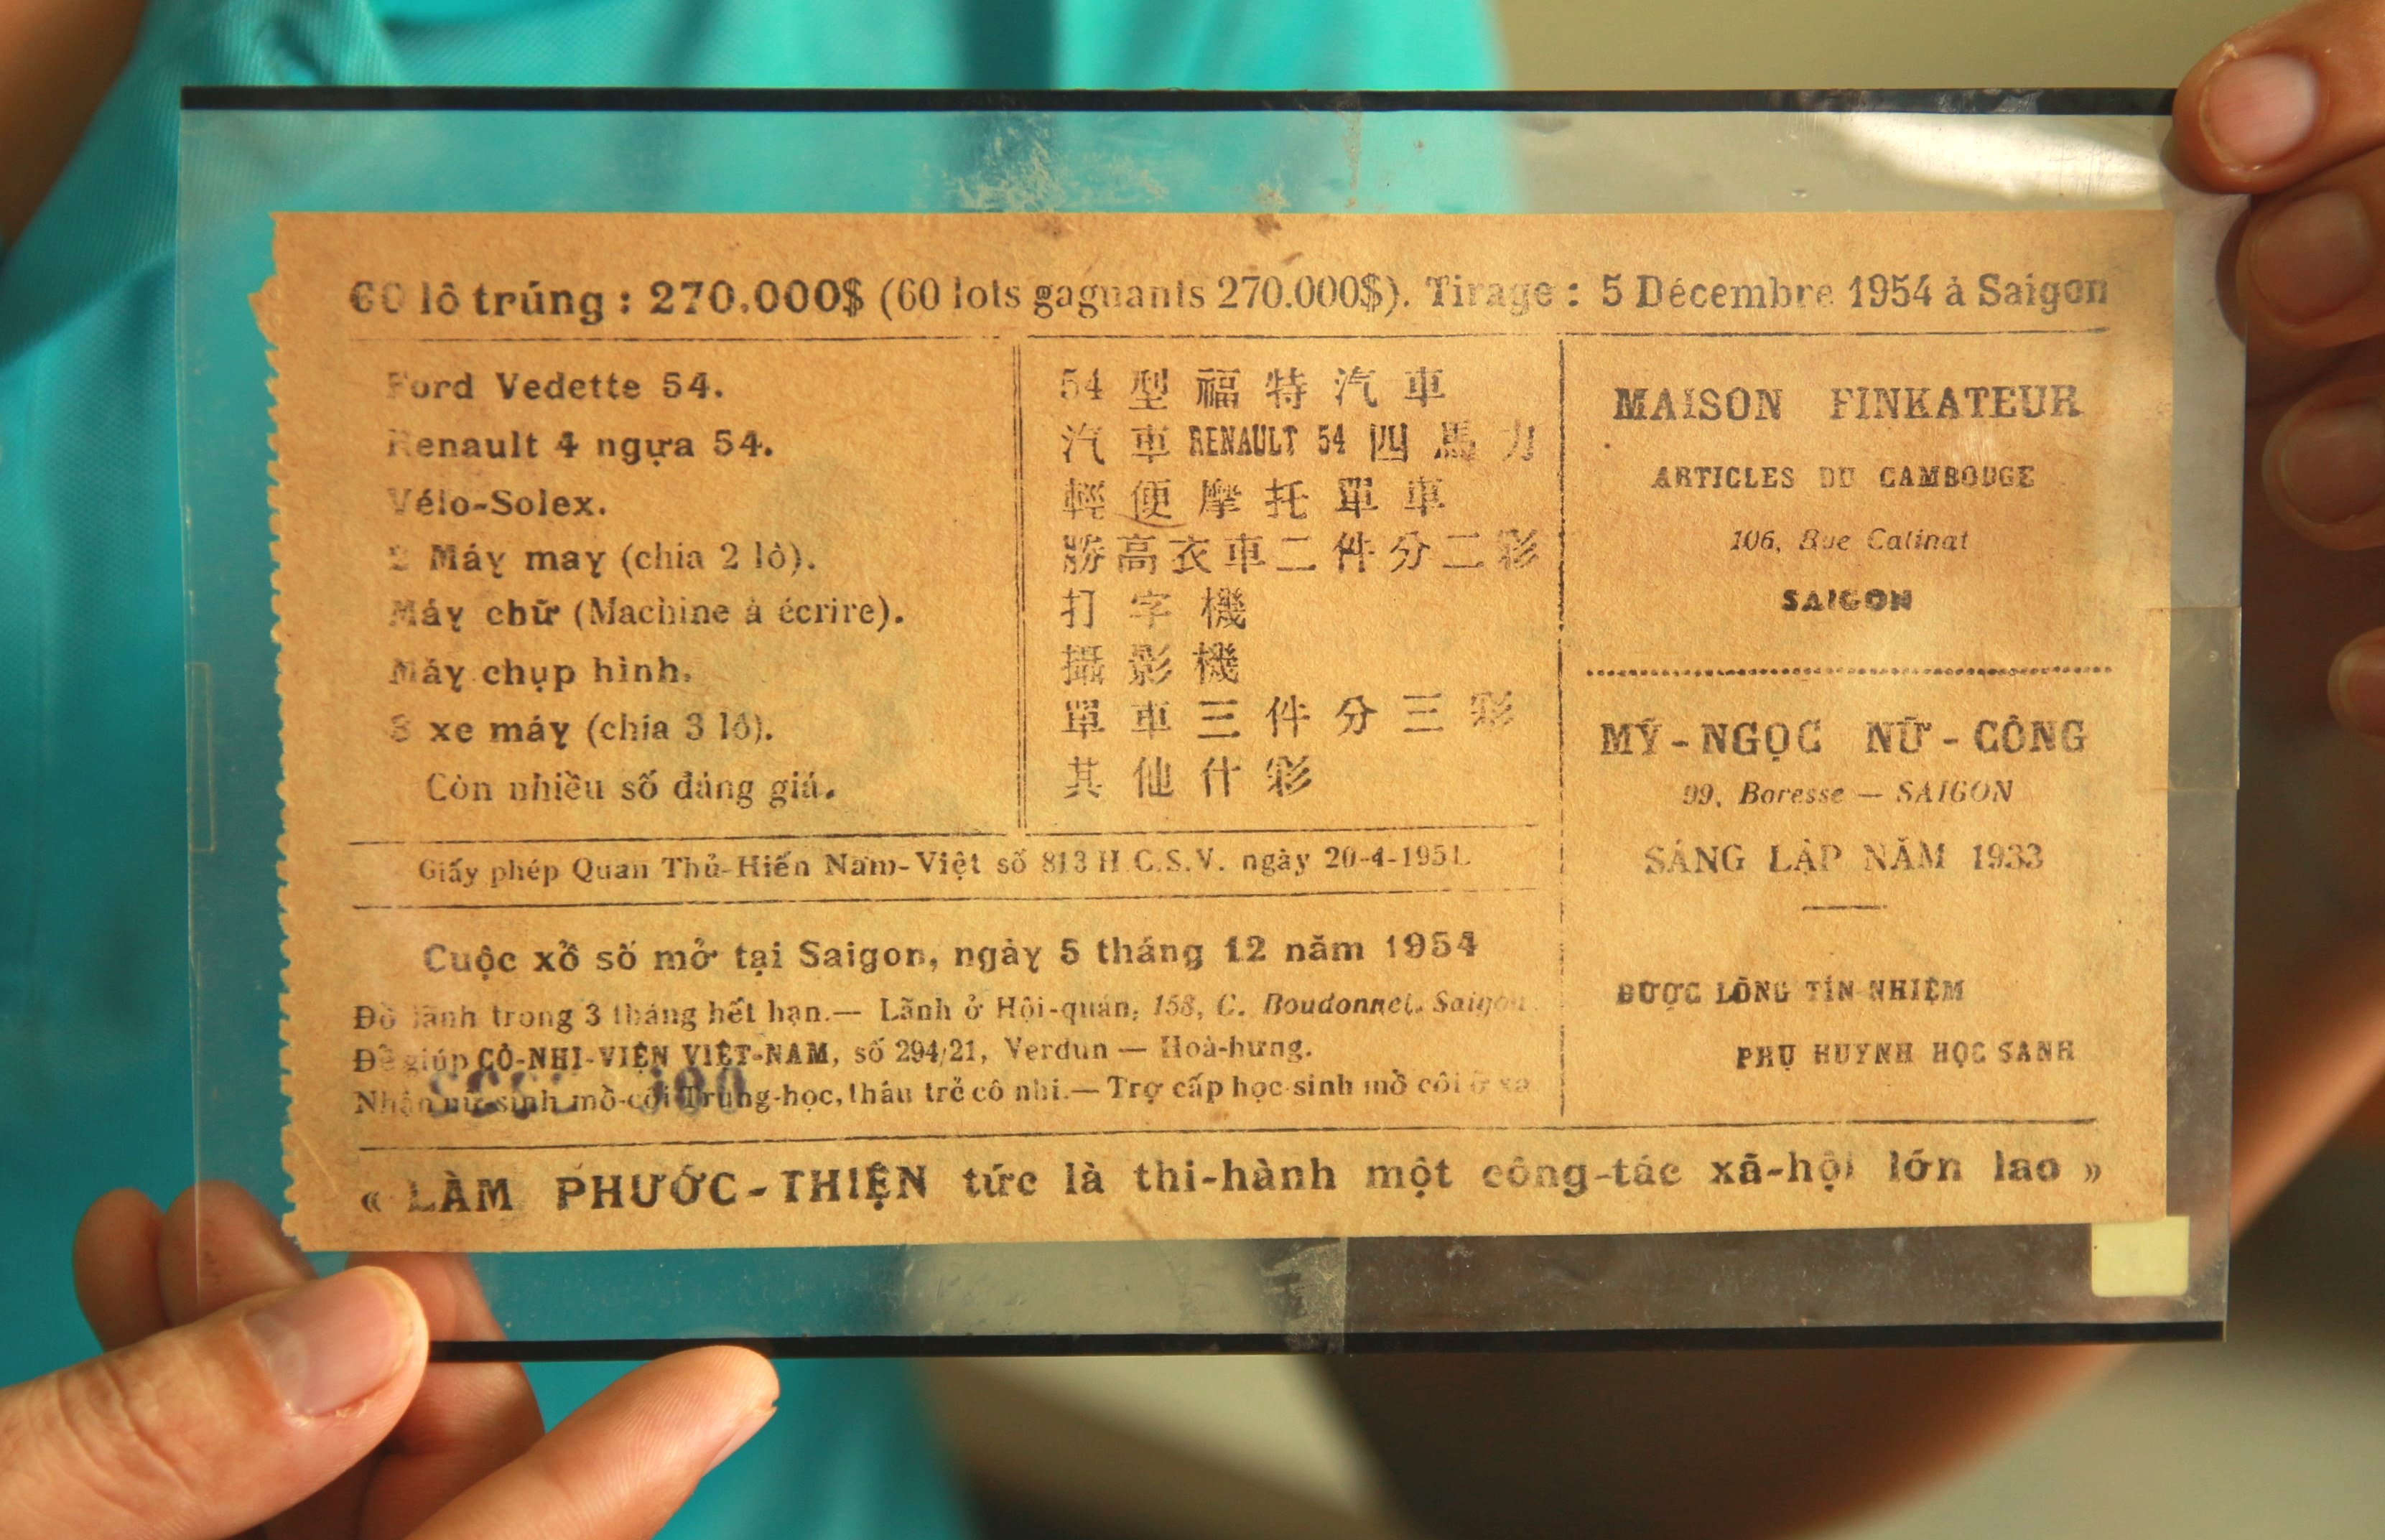 60 lô trúng : 270.000$ (60 lots gagnants 270.000$). Tirage : 5 Décembre 1954 à Saigon
Ford Vedette 54.
Renault 4 ngựa 54.
Vélo-Solex.
2 Máy may (chia 2 lô).
Máy chữ (Machine à écrire).
Máy chụp hình.
3 xe máy (chia 3 lô).
Còn nhiều số đáng giá.
54 型福特汽車
汽車 RENAULT 54 四馬力
輕便摩托單車
勝高衣車二件分二彩
打字機
攝影機
單車三件分三彩
其他什彩
MAISON FINKATEUR
ARTICLES DU CAMBODGE
106, Rue Catinat
SAIGON
MỸ-NGỌC NỮ-CÔNG
99, Boresse — SAIGON
SÁNG LẬP NĂM 1933
ĐƯỢC LÒNG TÍN NHIỆM
PHỤ HUYNH HỌC SANH
Giấy phép Quan Thủ-Hiến Nam-Việt số 813 H.C.S.V. ngày 20-4-1951.
Cuộc xổ số mở tại Saigon, ngày 5 tháng 12 năm 1954
Đồ lãnh trong 3 tháng hết hạn.— Lãnh ở Hội-quán, 158, C. Boudonnet. Saigon
Để giúp CÔ-NHI-VIỆN VIỆT-NAM, số 294/21, Verdun — Hoà-hưng.
Nhận nữ-sinh mồ-côi Trung-học, thâu trẻ cô nhi.— Trợ cấp học-sinh mồ côi ở xa
« LÀM PHƯỚC-THIỆN tức là thi-hành một công-tác xã-hội lớn lao »